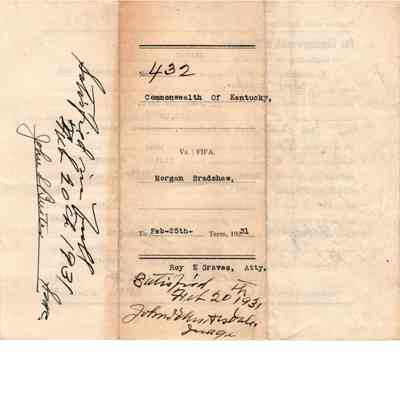 No. 432
Commonwealth Of Kentucky,
Vs. FIFA.
Morgan Bradshaw,
To Feb-25th- Term, 1931
Roy E Graves, Atty.
Satisfied
Feb 20th 1931
Judge
Satisfied in full
Feb 20th 1931
John